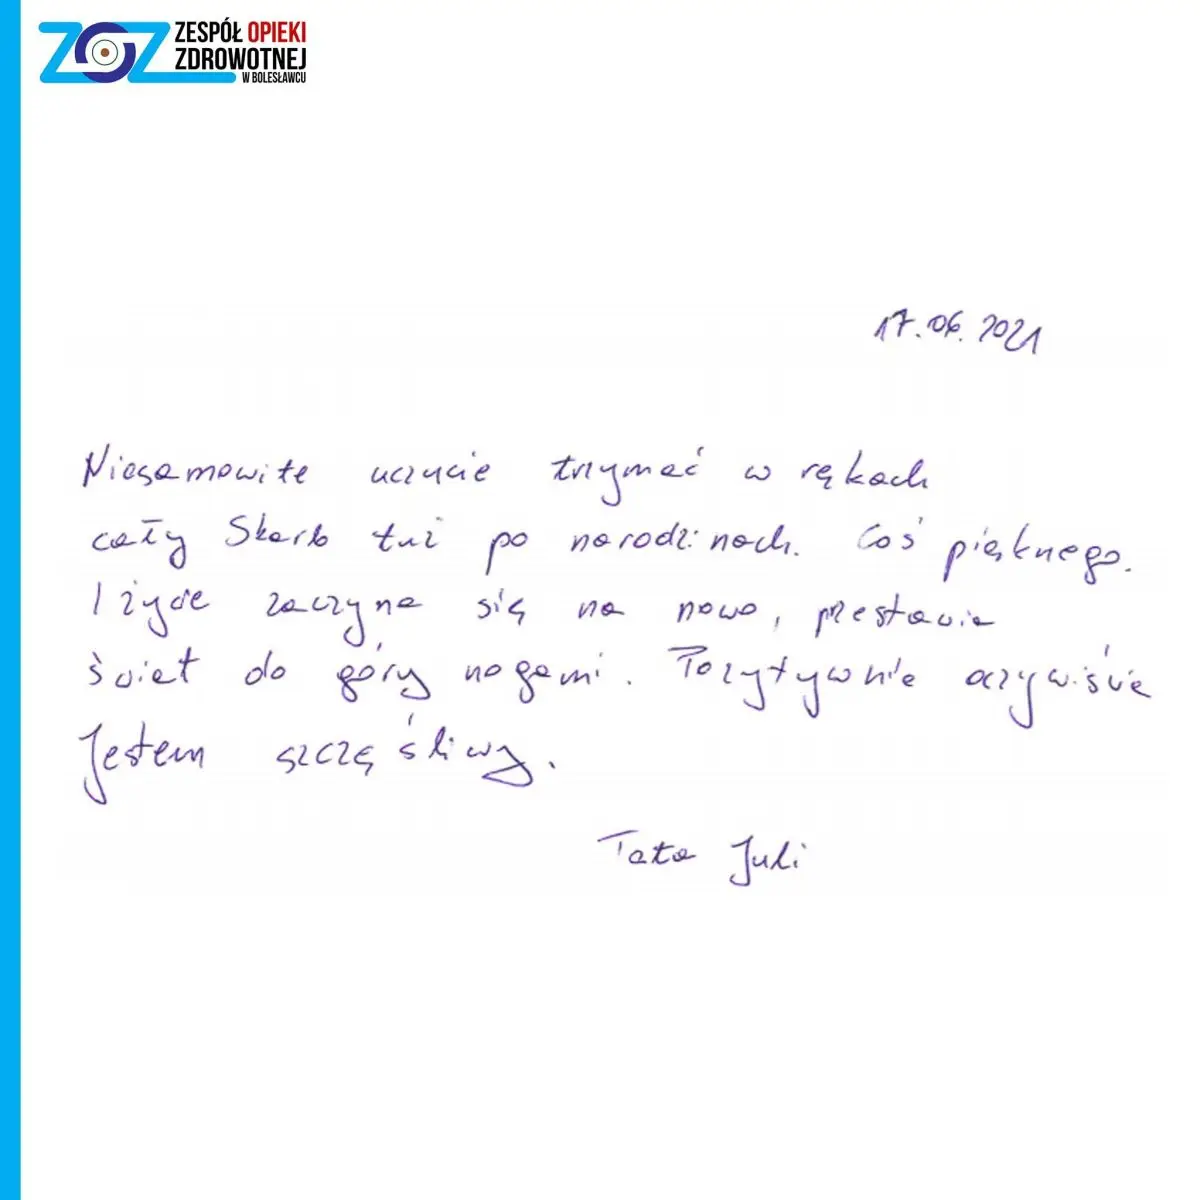 ZOZ
ZESPÓŁ OPIEKI
ZDROWOTNEJ
W BOLESŁAWCU
17.06.2021
Niesamowite uczucie trzymać w rękach
cały Skarb tuż po narodzinach. Coś pięknego.
I życie zaczyna się na nowo, przestawia
świat do góry nogami. Pozytywnie oczywiście
Jestem szczęśliwy.
Tata Juli